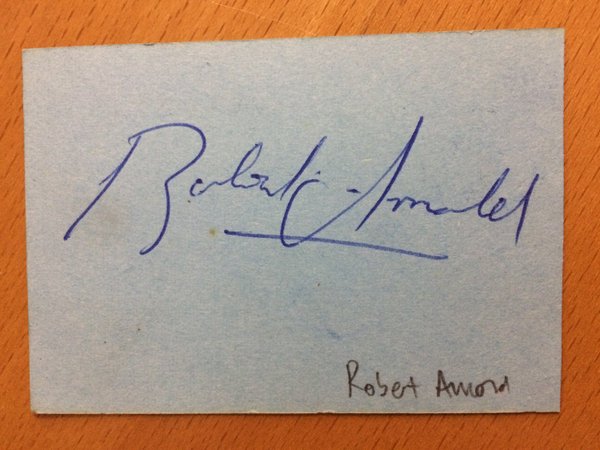 Robert Arnold
Robert Arnold